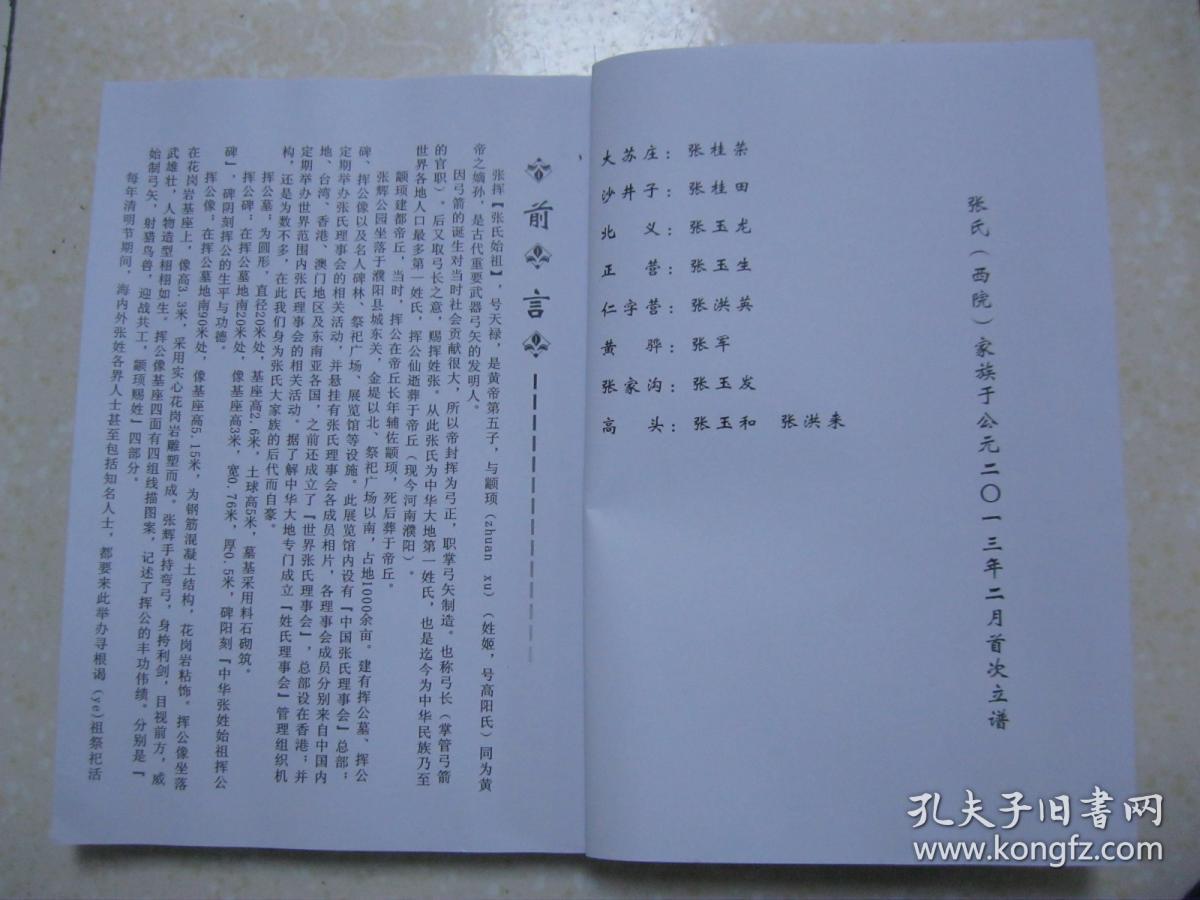 张氏（西院）家族于公元二〇一三年二月首次立谱
大苏庄：张桂荣
沙井子：张桂田
北　义：张玉龙
正　营：张玉生
仁字营：张洪英
黄　骅：张军
张家沟：张玉发
高　头：张玉和　张洪来
前言
张挥【张氏始祖】，号天禄，是黄帝第五子，与颛顼（zhuan xu）（姓姬，号高阳氏）同为黄
帝之嫡孙，是古代重要武器弓矢的发明人。
因弓箭的诞生对当时社会贡献很大，所以帝封挥为弓正，职掌弓矢制造。也称弓长（掌管弓箭
的官职）。后又取弓长之意，赐挥姓张。从此张氏为中华大地第一姓氏，也是迄今为中华民族乃至
世界各地人口最多第一姓氏，挥公仙逝葬于帝丘（现今河南濮阳）。
颛顼建都帝丘，当时，挥公在帝丘长年辅佐颛顼，死后葬于帝丘。
张辉公园坐落于濮阳县城东关，金堤以北、祭祀广场以南，占地1000余亩。建有挥公墓、挥公
碑、挥公像以及名人碑林、祭祀广场、展览馆等设施。此展览馆内设有『中国张氏理事会』总部；
定期举办张氏理事会的相关活动，并悬挂有张氏理事会各成员相片，各理事会成员分别来自中国内
地、台湾、香港、澳门地区及东南亚各国，之前还成立了『世界张氏理事会』，总部设在香港；并
定期举办世界范围内张氏理事会的相关活动。据了解中华大地专门成立『姓氏理事会』管理组织机
构，还是为数不多，在此我们身为张氏大家族的后代而自豪。
挥公墓：为圆形，直径20米处，基座高2.6米，土球高5米，墓基采用料石砌筑。
挥公碑：在挥公墓地南20米处，像基座高3米，宽0.76米，厚0.5米，碑阳刻『中华张姓始祖挥公
碑』，碑阴刻挥公的生平与功德。
挥公像：在挥公墓地南90米处，像基座高5.15米，为钢筋混凝土结构，花岗岩粘饰。挥公像坐落
在花岗岩基座上，像高3.3米，采用实心花岗岩雕塑而成。张辉手持弯弓，身挎利剑，目视前方，威
武雄壮，人物造型栩栩如生。挥公像基座四面有四组线描图案，记述了挥公的丰功伟绩。分别是『
始制弓矢，射猎鸟兽，迎战共工，颛顼赐姓』四部分。
每年清明节期间，海内外张姓各界人士甚至包括知名人士，都要来此举办寻根谒（ye）祖祭祀活
孔夫子旧书网
www.kongfz.com